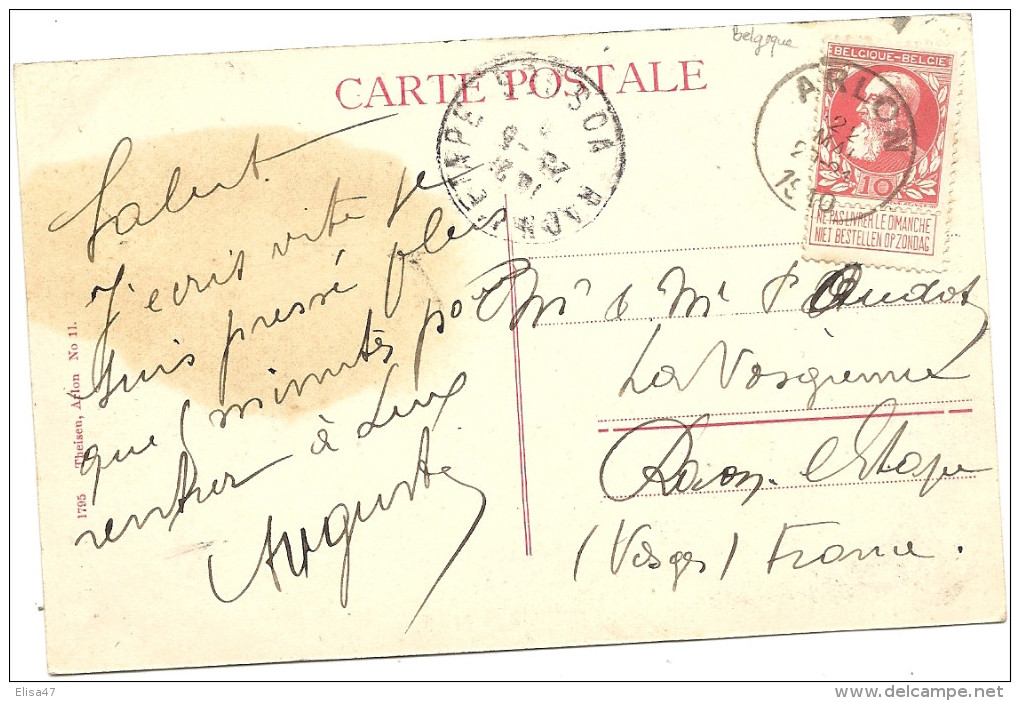 Belgique
CARTE POSTALE
BELGIQUE-BELGIE
10
NE PAS LIVRER LE DIMANCHE
NIET BESTELLEN OP ZONDAG
ARLON
MAI
1910
RAON L'ETAPE
Salut.
J'écris vite je
suis pressé plus
que 5 minutes pour
rentrer à Lux
Auguste
Mr & Me P Oudot
La Vosgienne
Raon-l'Etape
(Vosges) France.
1795 Theisen, Arlon No 11.
Elisa47
www.delcampe.net